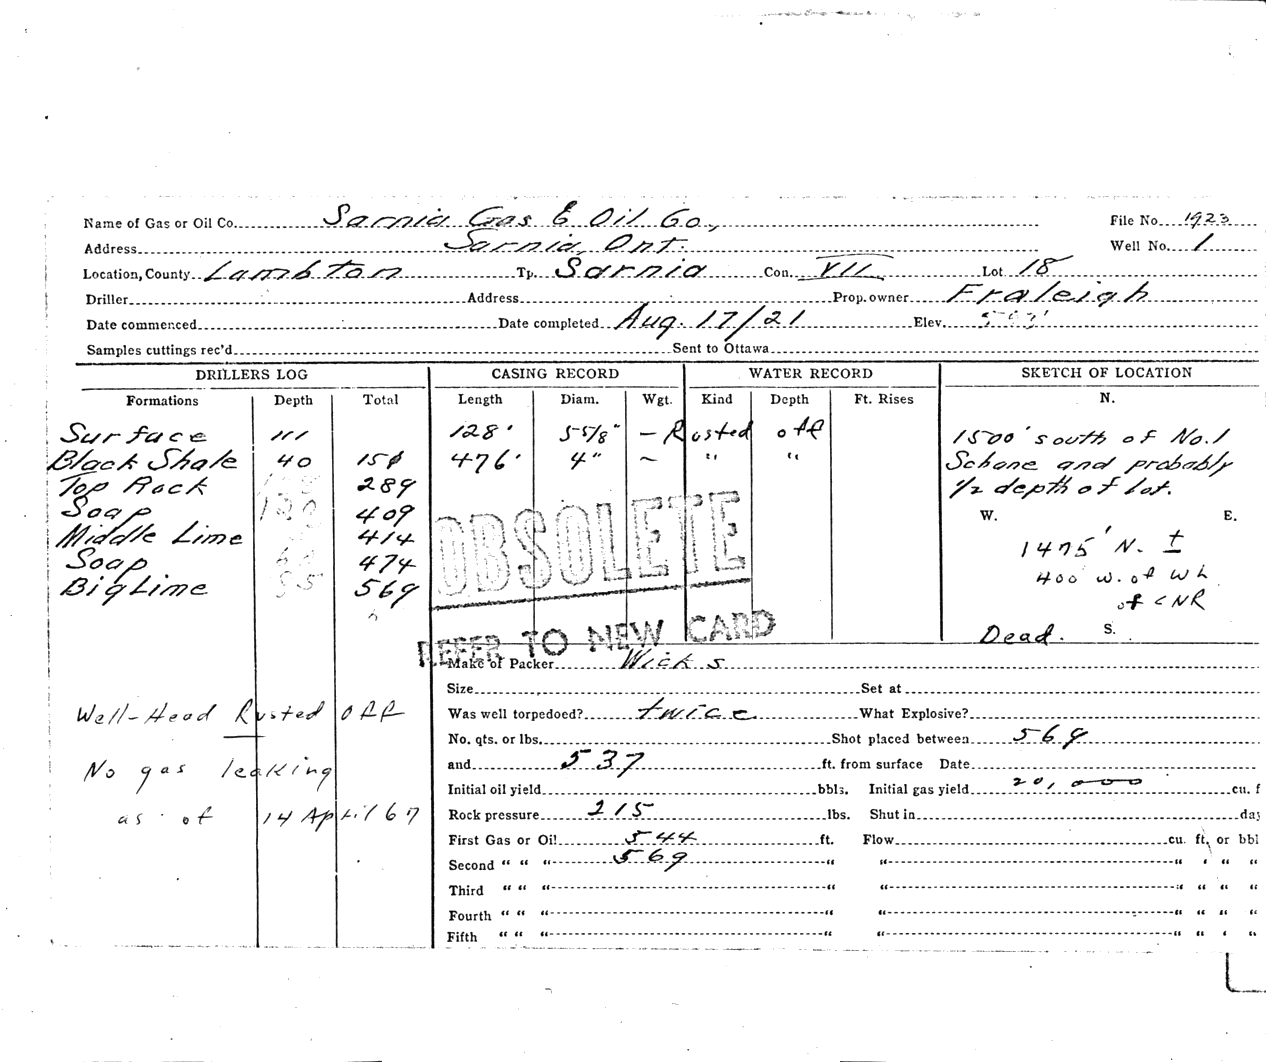 Name of Gas or Oil Co. Sarnia Gas & Oil Co., File No. 1923
Address Sarnia, Ont. Well No. 1
Location, County Lambton Tp. Sarnia Con. VII Lot 18
Driller Address Prop. owner Fraleigh
Date commenced Date completed Aug. 17/21 Elev.
Samples cuttings rec'd Sent to Ottawa
DRILLERS LOG CASING RECORD WATER RECORD SKETCH OF LOCATION
Formations Depth Total Length Diam. Wgt. Kind Depth Ft. Rises N.
Surface 111 128' 5-5/8" - Rusted off
Black Shale 40 151 476' 4" - " "
Top Rock 289
Soap 120 409
Middle Lime 414
Soap 60 474
Big Lime 95 569
1500' south of No. 1
Schone and probably
1/2 depth of lot.
W. E.
1475' N. ±
400 W. of W L
of CNR
Dead. S.
OBSOLETE
REFER TO NEW CARD
Make of Packer Wicks
Size Set at
Was well torpedoed? twice What Explosive?
No. qts. or lbs. Shot placed between 569
and 537 ft. from surface Date
Initial oil yield bbls. Initial gas yield 201,000 cu. f
Rock pressure 215 lbs. Shut in day
First Gas or Oil 544 ft. Flow cu. ft. or bbl
Second " " " 569 " " " " "
Third " " " " " " " "
Fourth " " " " " " " "
Fifth " " " " " " " "
Well-Head Rusted Off
No gas leaking
as of 14 April 67